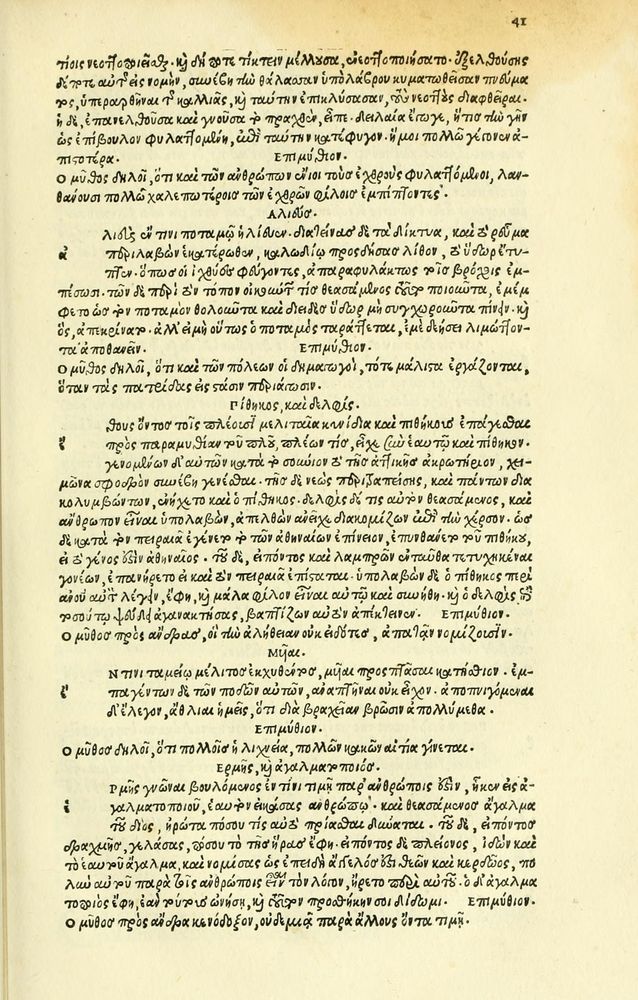 41
τισις νεοττοποιεῖσθαι. καὶ δή ποτε τίκτειν μέλλουσα, ἐνεοττοποιήσατο. ἐξελθούσης
δέ ποτε αὐτῆς εἰς νομὴν, συνέβη τὴν θάλασσαν ὑπὸ λάβρου κυματωθεῖσαν πνεύμα
τος, ὑπεραρθῆναι τῆς καλλιᾶς, καὶ ταύτην ἐπικλύσασαν, τοὺς νεοττοὺς διαφθεῖραι.
ἡ δὲ, ἐπανελθοῦσα καὶ γνοῦσα τὸ πραχθὲν, εἶπε. δειλαία ἔγωγε, ἥτις τὴν γῆν
ὡς ἐπίβουλον φυλαττομένη, ἐπὶ ταύτην κατέφυγον. ἥ μοι πολλῷ γέγονεν ἀ-
πιστοτέρα. Επιμύθιον.
Ο μῦθος δηλοῖ, ὅτι καὶ τῶν ἀνθρώπων ἔνιοι τοὺς ἐχθροὺς φυλαττόμενοι, λαν-
θάνουσι πολλῷ χαλεπωτέροις τῶν ἐχθρῶν φίλοις ἐμπίπτοντες.
Αλιεύς.
λιεὺς ἔν τινι ποταμῷ ἡλίευεν. διατείνας δὲ τὰ δίκτυα, καὶ τὸ ῥεῦμα
ἁ περιλαβὼν ἑκατέρωθεν, καλωδίῳ προσδήσας λίθον, τὸ ὕδωρ ἔτυ-
πτεν. ὅπως οἱ ἰχθύες φεύγοντες, ἀπαραφυλάκτως τοῖς βρόχοις ἐμ-
πέσωσι. τῶν δὲ περὶ τὸν τόπον οἰκούντων τις θεασάμενος τοῦτο ποιοῦντα, ἐμέμ
φετο ὡς τὸν ποταμὸν θολοῦντα καὶ διειδὲς ὕδωρ μὴ συγχωροῦντα πίνειν. καὶ
ὃς, ἀπεκρίνατο. ἀλλ' εἰ μὴ οὕτως ὁ ποταμὸς ταράττεται, ἐμὲ δεήσει λιμώττον-
τα ἀποθανεῖν. Επιμύθιον.
Ο μῦθος δηλοῖ, ὅτι καὶ τῶν πόλεων οἱ δημαγωγοὶ, τότε μάλιστα ἐργάζονται,
ὅταν τὰς πατρίδας εἰς στάσιν περιάγωσιν.
Πίθηκος, καὶ δελφίς.
θους ὄντος τοῖς πλέουσι μελιταῖα κυνίδια καὶ πιθήκους ἐπάγεσθαι
ἔ πρὸς παραμυθίαν τοῦ πλοῦ, πλέων τὶς, εἶχε σὺν ἑαυτῷ καὶ πίθηκον.
γενομένων δ' αὐτῶν κατὰ τὸ σούνιον τὸ τῆς ἀττικῆς ἀκρωτήριον, χει-
μῶνα σφοδρὸν συνέβη γενέσθαι. τῆς δὲ νεὼς περιτραπείσης, καὶ πάντων δια
κολυμβώντων, ἐνήχετο καὶ ὁ πίθηκος. δελφὶς δέ τις αὐτὸν θεασάμενος, καὶ
ἄνθρωπον εἶναι ὑπολαβὼν, ἀπελθὼν ἀνεῖχε διακομίζων ἐπὶ τὴν χέρσον. ὡς
δὲ κατὰ τὸν πειραιᾶ ἐγένετο τὸ τῶν ἀθηναίων ἐπίνειον, ἐπυνθάνετο τοῦ πιθήκου,
εἰ τὸ γένος ἐστὶν ἀθηναῖος. τοῦ δὲ, εἰπόντος καὶ λαμπρῶν ἐνταῦθα τετυχηκέναι
γονέων, ἐπανήρετο εἰ καὶ τὸν πειραιᾶ ἐπίσταται. ὑπολαβὼν δὲ ὁ πίθηκος περὶ
ἀνθρώπου αὐτὸν λέγειν, ἔφη, καὶ μάλα φίλον εἶναι αὐτῷ καὶ συνήθη. καὶ ὁ δελφὶς ἐπὶ
τοσούτῳ ψεύδει ἀγανακτήσας, βαπτίζων αὐτὸν ἀπέκτεινεν. Επιμύθιον.
Ο μῦθος πρὸς ἄνδρας, οἳ τὴν ἀλήθειαν οὐκ εἰδότες, ἀπατᾶν νομίζουσιν.
Μῦιαι.
Ν τινι ταμείῳ μέλιτος ἐκχυθέντος, μῦιαι προσπτᾶσαι κατήσθιον. ἐμ-
ἔ παγέντων δὲ τῶν ποδῶν αὐτῶν, ἀναπτῆναι οὐκ εἶχον. ἀποπνιγόμεναι
δ' ἔλεγον, ἄθλιαι ἡμεῖς, ὅτι διὰ βραχεῖαν βρῶσιν ἀπολλύμεθα.
Επιμύθιον.
Ο μῦθος δηλοῖ, ὅτι πολλοῖς ἡ λιχνεία, πολλῶν κακῶν αἰτία γίνεται.
Ερμῆς, καὶ ἀγαλματοποιός.
Ρμῆς γνῶναι βουλόμενος ἐν τίνι τιμῇ παρ' ἀνθρώποις ἐστὶν, ἧκεν εἰς ἀ-
ἑ γαλματοποιοῦ, ἑαυτὸν εἰκάσας ἀνθρώπῳ. καὶ θεασάμενος ἄγαλμα
τοῦ διὸς, ἠρώτα πόσου τὶς αὐτὸ πρίασθαι δύναται. τοῦ δὲ, εἰπόντος
δραχμῆς, γελάσας, πόσου τὸ τῆς ἥρας ἔφη. εἰπόντος δὲ πλείονος, ἰδὼν καὶ
τὸ ἑαυτοῦ ἄγαλμα, καὶ νομίσας ὡς ἐπειδὴ ἄγγελός ἐστι θεῶν καὶ κερδῷος, πο
λὺν αὐτοῦ παρὰ τοῖς ἀνθρώποις εἶναι τὸν λόγον, ἤρετο περὶ αὐτοῦ. ὁ δ' ἀγαλμα
τοποιὸς ἔφη, ἐὰν τούτους ὠνήσῃ, καὶ τοῦτον προσθήκην σοι δίδωμι. Επιμύθιον.
Ο μῦθος πρὸς ἄνδρα κενόδοξον, οὐδεμιᾷ παρὰ ἄλλοις ὄντα τιμῇ.